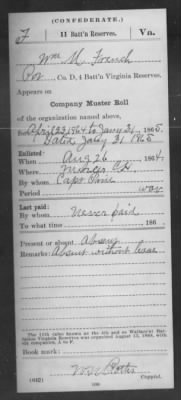 (CONFEDERATE.)
F 11 Batt'n Reserves. Va.
Wm M. French
Co. D, 4 Batt'n Virginia Reserves.
Appears on
Company Muster Roll
of the organization named above,
for April 23, 1864 to Jany 31, 1865.
Dated Jany 31 1865
Enlisted:
When Aug 26, 1864.
Where Mercer Co.
By whom Capt
Period war
Last paid:
By whom Never paid
To what time , 186 .
Present or absent Absent
Remarks: Absent without leave
The 11th
talion Virginia Reserves was organized August 13, 1864, with
six companies, A to F.
Book mark:
(642) Copyist.